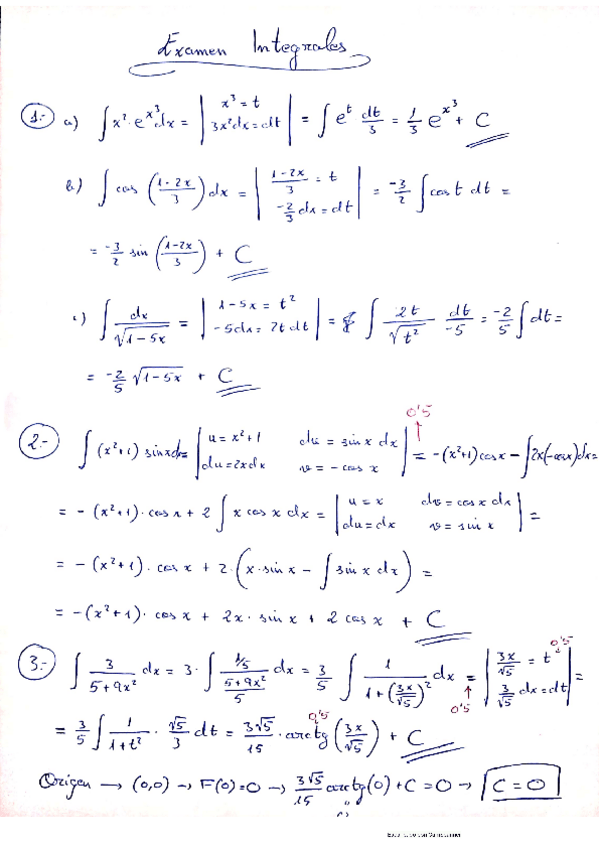 Examen Integrales
1.- a) ∫ x² · e^{x³} dx = | x³ = t ; 3x² dx = dt | = ∫ e^t dt/3 = 1/3 e^{x³} + C
b) ∫ cos ((1-2x)/3) dx = | (1-2x)/3 = t ; -2/3 dx = dt | = -3/2 ∫ cos t dt =
= -3/2 sin ((1-2x)/3) + C
c) ∫ dx/√(1-5x) = | 1-5x = t² ; -5dx = 2t dt | = ∫ 2t/√(t²) dt/-5 = -2/5 ∫ dt =
= -2/5 √(1-5x) + C
0'5
2.- ∫ (x²+1) sinx dx = | u = x²+1 du = 2x dx ; dv = sinx dx v = -cos x | = -(x²+1) cosx - ∫ 2x(-cosx) dx =
= -(x²+1) · cos x + 2 ∫ x cos x dx = | u = x du = dx ; dv = cosx dx v = sin x | =
= -(x²+1) · cos x + 2 · (x · sin x - ∫ sin x dx) =
= -(x²+1) · cos x + 2x · sin x + 2 cos x + C
0'5
3.- ∫ 3/(5+9x²) dx = 3 · ∫ (1/5)/((5+9x²)/5) dx = 3/5 ∫ 1/(1+(3x/√5)²) dx = | 3x/√5 = t ; 3/√5 dx = dt | =
0'5
0'5
= 3/5 ∫ 1/(1+t²) · √5/3 dt = 3√5/15 · arctg (3x/√5) + C
Origen → (0,0) → F(0)=0 → 3√5/15 arctg(0) + C = 0 → C = 0